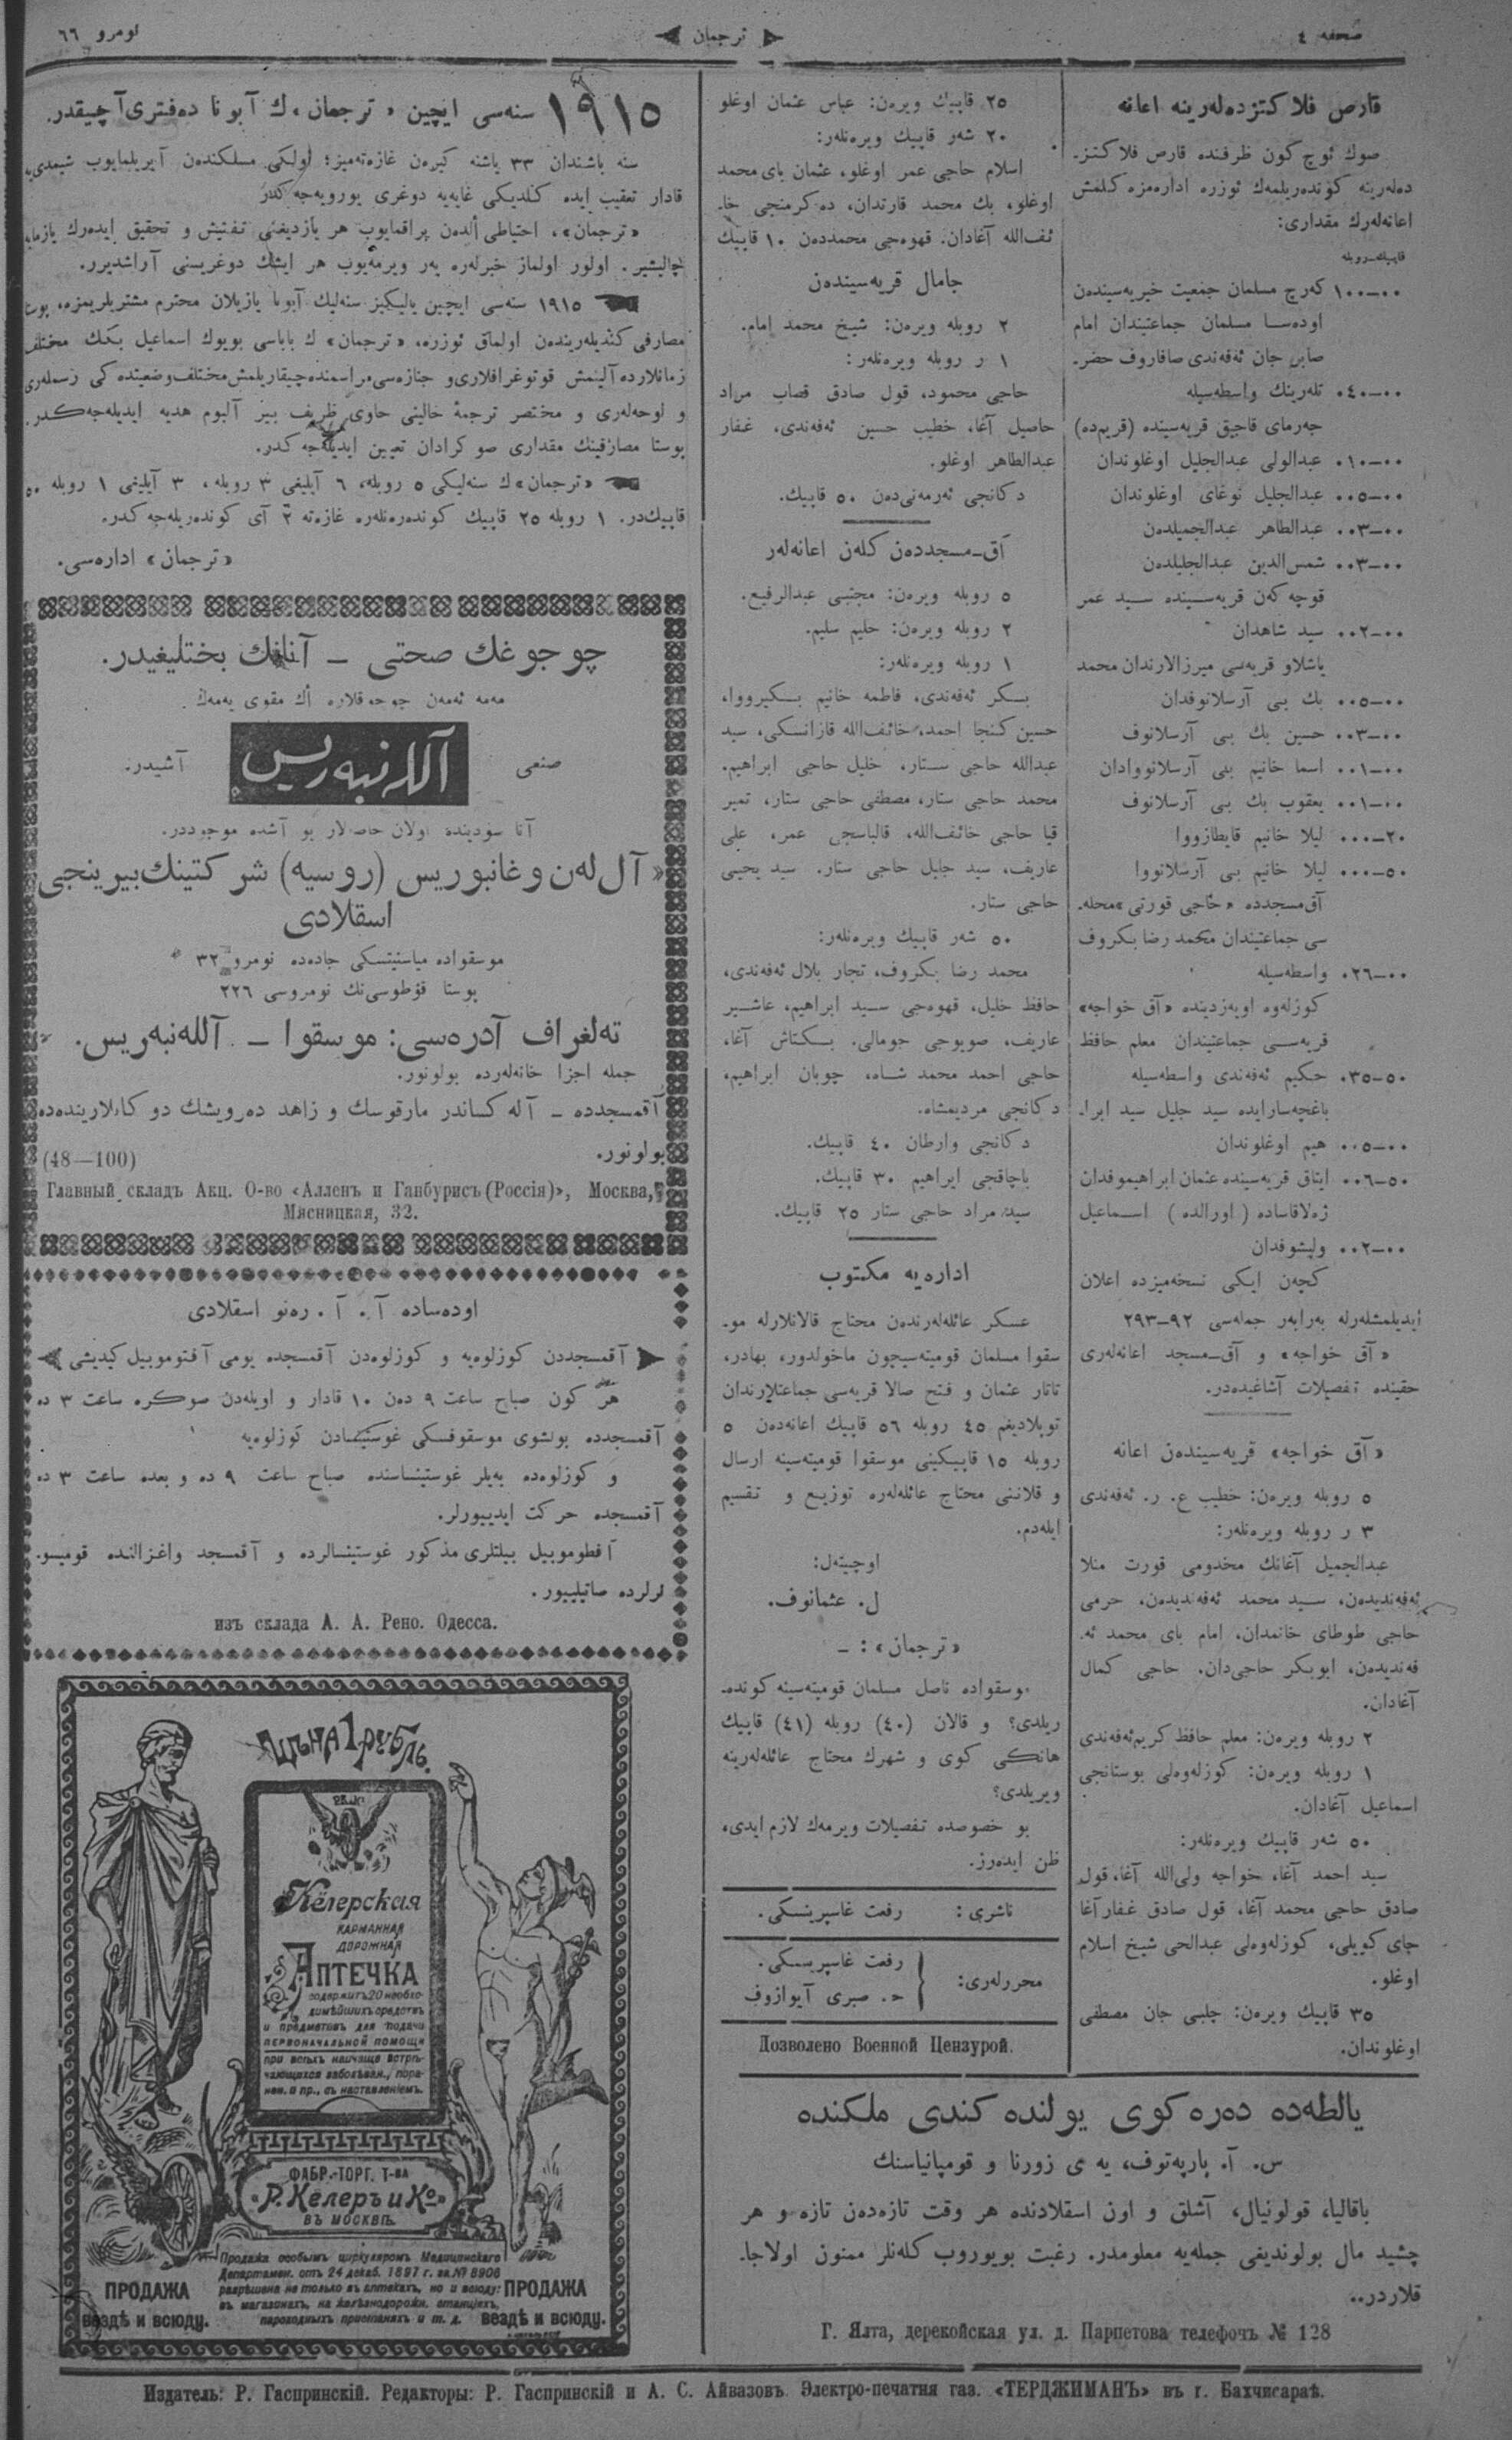 صحفه ٤
ترجمان
نومرو ٦٦
قارص فلاكتزده‌لرینه اعانه
صوك ئوچ كون ظرفنده قارص فلاكتز-
ده‌لرینه كونده‌ریلمك ئوزره اداره‌مزه كلمش
اعانه‌لرك مقداری:
قاپیك—روبله
١٠٠—٠٠ كه‌رچ مسلمان جمعیت خیریه‌سیندن
اوده‌سا مسلمان جماعتیندان امام
صابر جان ئه‌فه‌ندی صافاروف حضر-
٠٤٠—٠٠ تله‌رینك واسطه‌سیله
جه‌رمای قاجیق قریه‌سینده (قریم‌ده)
٠١٠—٠٠ عبدالولی عبدالجلیل اوغلوندان
٠٠٥—٠٠ عبدالجلیل نوغای اوغلوندان
٠٠٣—٠٠ عبدالطاهر عبدالجمیلدن
٠٠٣—٠٠ شمس‌الدین عبدالجلیلدن
قوچه كه‌ن قریه‌سینده سید عمر
٠٠٢—٠٠ سید شاهدان
یاشلاو قریه‌سی میرزالارندان محمد
٠٠٥—٠٠ بك بی آرسلانوفدان
٠٠٣—٠٠ حسین بك بی آرسلانوف
٠٠١—٠٠ اسما خانیم بی آرسلانووادان
٠٠١—٠٠ یعقوب بك بی آرسلانوف
٠٠٠—٢٠ لیلا خانیم قایطازووا
٠٠٠—٥٠ لیلا خانیم بی آرسلانووا
آق‌مسجدده «حاجی قورتی» محله-
سی جماعتیندان محمد رضا بكروف
٠٢٦—٠٠ واسطه‌سیله
كوزله‌وه اویه‌زدینده «آق خواجه»
قریه‌سی جماعتیندان معلم حافظ
٠٣٥—٥٠ حكیم ئه‌فه‌ندی واسطه‌سیله
باغچه‌سارایده سید جلیل سید ابرا-
٠٠٥—٠٠ هیم اوغلوندان
٠٠٦—٥٠ ایتاق قریه‌سینده عثمان ابراهیموفدان
ژه‌لاقاساده (اورالده) اسماعیل
٠٠٢—٠٠ ولیشوفدان
كچه‌ن ایكی نسخه‌میزده اعلان
ایدیلمشلرله به‌رابه‌ر جمله‌سی ٩٢—٢٩٣
«آق خواجه» و آق—مسجد اعانه‌لری
حقینده تفصیلات آشاغیده‌در.
«آق خواجه» قریه‌سیندن اعانه
٥ روبله ویره‌ن: خطیب ع. ر. ئه‌فه‌ندی
٣ ر روبله ویره‌نلر:
عبدالجمیل آغانك مخدومی قورت منلا
ئه‌فه‌ندیدن، سید محمد ئه‌فه‌ندیدن، حرمی
حاجی طوطای خانمدان، امام بای محمد ئه-
فه‌ندیدن، ابوبكر حاجی‌دان. حاجی كمال
آغادان.
٢ روبله ویره‌ن: معلم حافظ كریم ئه‌فه‌ندی
١ روبله ویره‌ن: كوزله‌وه‌لی بوستانجی
اسماعیل آغادان.
٥٠ شه‌ر قاپیك ویره‌نلر:
سید احمد آغا، خواجه ولی‌الله آغا، قول
صادق حاجی محمد آغا، قول صادق غفار آغا
جای كویلی، كوزله‌وه‌لی عبدالحی شیخ اسلام
اوغلو.
٣٥ قاپیك ویره‌ن: چلبی جان مصطفی
اوغلوندان.
٢٥ قاپیك ویره‌ن: عباس عثمان اوغلو
٢٠ شه‌ر قاپیك ویره‌نلر:
اسلام حاجی عمر اوغلو، عثمان بای محمد
اوغلو، بك محمد قارتدان، ده‌كرمنجی خا-
ئف‌الله آغادان. قهوه‌جی محمددن ١٠ قاپیك
جامال قریه‌سیندن
٢ روبله ویره‌ن: شیخ محمد امام.
١ ر روبله ویره‌نلر:
حاجی محمود، قول صادق قصاب مراد
حاصیل آغا، خطیب حسین ئه‌فه‌ندی، غفار
عبدالطاهر اوغلو.
دكانجی ئه‌رمه‌نی‌دن ٥٠ قاپیك.
آق—مسجددن كلن اعانه‌لر
٥ روبله ویره‌ن: مجتبی عبدالرفیع.
٢ روبله ویره‌ن: حلیم سلیم.
١ روبله ویره‌نلر:
بكر ئه‌فه‌ندی، فاطمه خانیم بكیرووا،
حسین كنجا احمد، خائف‌الله قازانسكی، سید
عبدالله حاجی ستار، خلیل حاجی ابراهیم.
محمد حاجی ستار، مصطفی حاجی ستار، تمیر
قیا حاجی خائف‌الله، قالباسجی عمر، علی
عاریف، سید جلیل حاجی ستار. سید یحیی
حاجی ستار.
٥٠ شه‌ر قاپیك ویره‌نلر:
محمد رضا بكروف، تجار بلال ئه‌فه‌ندی،
حافظ خلیل، قهوه‌جی سید ابراهیم، عاشیر
عاریف، صوبوجی جومالی. بكتاش آغا،
حاجی احمد محمد شاه، چوبان ابراهیم،
دكانجی مردیمشاه.
دكانجی وارطان ٤٠ قاپیك.
باچاقجی ابراهیم ٣٠ قاپیك.
سید مراد حاجی ستار ٢٥ قاپیك.
اداره‌یه مكتوب
عسكر عائله‌لرندن محتاج قالانلارله مو-
سقوا مسلمان قومیته‌سیچون ماخولدور، بهادر،
تاتار عثمان و فتح صالا قریه‌سی جماعتلارندان
توپلادیغم ٤٥ روبله ٥٦ قاپیك اعانه‌دن ٥
روبله ١٥ قاپیكینی موسقوا قومیته‌سینه ارسال
و قلاننی محتاج عائله‌لره توزیع و تقسیم
ایله‌دم.
اوچیته‌ل:
ل. عثمانوف.
«ترجمان»: —
موسقواده ناصل مسلمان قومیته‌سینه كونده-
ریلدی؟ و قالان (٤٠) روبله (٤١) قاپیك
هانكی كوی و شهرك محتاج عائله‌لرینه
ویریلدی؟
بو خصوصده تفصیلات ویرمه‌ك لازم ایدی،
ظن ایده‌رز.
ناشری: رفعت غاسپرینسكی.
محررلری: { رفعت غاسپرینسكی.
ح. صبری آیوازوف
Дозволено Военной Цензурой.
یالطه‌ده ده‌ره‌كوی یولنده كندی ملكنده
س. آ. پارپه‌توف، یه ی زورنا و قومپانیاسنك
باقالیا، قولونیال، آشلق و اون اسقلادنده هر وقت تازه‌دن تازه و هر
چشید مال بولوندیغی جمله‌یه معلومدر. رغبت بویوروب كلنلر ممنون اولاجا-
قلاردر..
Г. Ялта, дерекойская ул. д. Парпетова телефочъ № 128
١٩١٥ سنه‌سی ایچین «ترجمان»ك آبونا ده‌فتری آچیقدر.
سنه باشندان ٣٣ یاشنه كیره‌ن غازه‌ته‌میز؛ اولكی مسلكندن آیریلمایوب شیمدی‌یه
قادار تعقیب ایده كلدیكی غایه‌یه دوغری یورویه‌جه‌كدر
«ترجمان»، احتیاطی ألدن براقمایوب هر یازدیغنی تفتیش و تحقیق ایده‌رك یازمایه
چالیشیر. اولور اولماز خبرلره یه‌ر ویرمه‌یوب هر ایشك دوغریسنی آراشدیرر.
١٩١٥ سنه‌سی ایچین یالیكیز سنه‌لیك آبونا یازیلان محترم مشتریلریمزه، پوستا
مصارفی كندیلریندن اولماق ئوزره، «ترجمان»ك باباسی بویوك اسماعیل بكك مختلف
زمانلارده آلینمش فوتوغرافلاری و جنازه‌سی مراسمنده چیقاریلمش مختلف وضعیتده كی رسملری
و لوحه‌لری و مختصر ترجمهٔ حالینی حاوی ظریف بیر آلبوم هدیه ایدیله‌جه‌كدر.
پوستا مصارفینك مقداری صوكرادان تعیین ایدیله‌جه‌كدر.
«ترجمان»ك سنه‌لیكی ٥ روبله، ٦ آیلیغی ٣ روبله، ٣ آیلیغی ١ روبله ٥٠
قاپیك‌در. ١ روبله ٢٥ قاپیك كونده‌ره‌نلره غازه‌ته ٢ آی كونده‌ریله‌جه‌كدر.
«ترجمان» اداره‌سی.
چوجوغك صحتی — آنانك بختلیغیدر.
مه‌مه ئه‌مه‌ن چوجوقلاره أك مقوی یه‌مه‌ك
صنعی آللـه‌نبه‌ریس آشیدر.
آنا سودینده اولان خاصه‌لار بو آشده موجوددر.
«آل‌له‌ن و غانبوریس (روسیه) شركتینك بیرینجی
اسقلادی
موسقواده میاسنیتسكی جاده‌ده نومرو ٣٢
پوستا قوطوسی‌نك نومروسی ٢٢٦
ته‌لغراف آدره‌سی: موسقوا — آلله‌نبه‌ریس.
جمله اجزا خانه‌لرده بولونور.
آقمسجدده — آله‌كساندر مارقوسك و زاهد ده‌رویشك دوكانلارینده‌ده
بولونور.
(48—100)
Главный складъ Акц. О-во «Алленъ и Ганбурисъ (Россія)», Москва,
Мясницкая, 32.
اوده‌ساده آ. آ. ره‌نو اسقلادی
آقمسجددن كوزلوه‌یه و كوزلوه‌دن آقمسجده یومی آفتوموبیل كیدیشی
هر كون صباح ساعت ٩ دن ١٠ قادار و اویله‌دن صوكره ساعت ٣ ده
آقمسجدده بولشوی موسقوفسكی غوستینسادن كوزلوه‌یه
و كوزلوه‌ده بیلر غوستینساسنده صباح ساعت ٩ ده و بعده ساعت ٣ ده
آقمسجده حركت ایدییورلر.
آفطوموبیل بیلتلری مذكور غوستینسالرده و آقمسجد واغزالنده قومیسو-
نرلرده صاتیلییور.
изъ склада А. А. Рено. Одесса.
Цѣна 1 рубль.
Келерская
КАРМАННАЯ
ДОРОЖНАЯ
АПТЕЧКА
содержитъ 20 необхо-
димѣйшихъ средствъ
и предметовъ для подачи
ПЕРВОНАЧАЛЬНОЙ ПОМОЩИ
при всѣхъ наичаще встрѣ-
чающихся заболѣван., пора-
нен. и пр., съ наставленіемъ.
ФАБР.-ТОРГ. Т-ва
«Р. Келеръ и Ко»
ВЪ МОСКВѢ.
Продажа особымъ циркуляромъ Медицинскаго
Департамен. отъ 24 декаб. 1897 г. за № 8906
разрѣшена не только въ аптекахъ, но и всюду:
въ магазинахъ, на желѣзнодорожн. станціяхъ,
пароходныхъ пристаняхъ и т. д.
ПРОДАЖА
вездѣ и всюду.
ПРОДАЖА
вездѣ и всюду.
Издатель: Р. Гаспринскій. Редакторы: Р. Гаспринскій и А. С. Айвазовъ. Электро-печатня газ. «ТЕРДЖИМАНЪ» въ г. Бахчисараѣ.